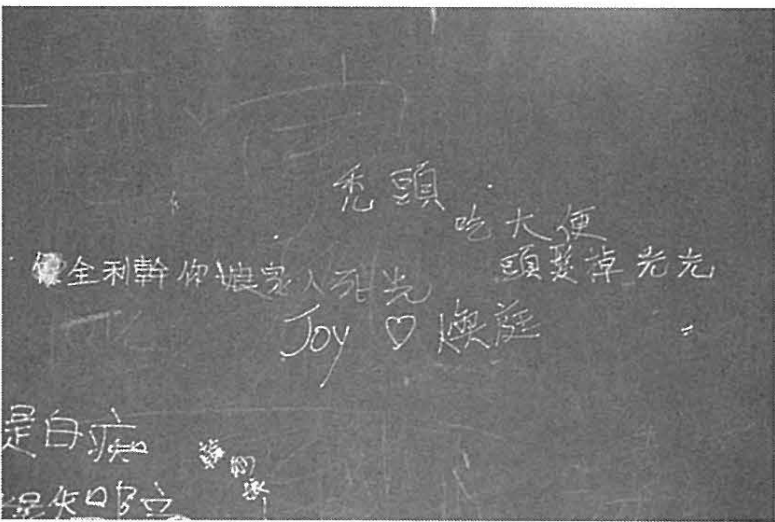 禿頭
吃大便
頭髮掉光光
全利幹你娘家人死光
Joy ♡ 煥庭
是白痴